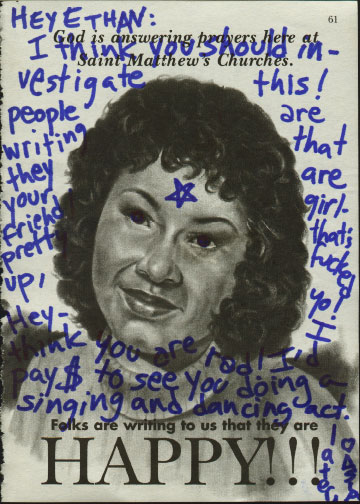 HEY ETHAN:
61
God is answering prayers here at
I think you should in-
Saint Matthew's Churches.
vestigate this!
people are
writing that
they are
your girl-
friend! that's
pretty fucked
up, yo!
Hey- I
think you are rad! I'd
pay $ to see you doing a
singing and dancing act.
Folks are writing to us that they are
HAPPY!!!
later,